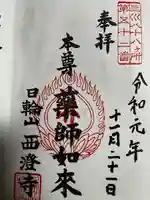 奉拝
令和元年
十一月二十一日
本尊 薬師如來
日輪山西澄寺